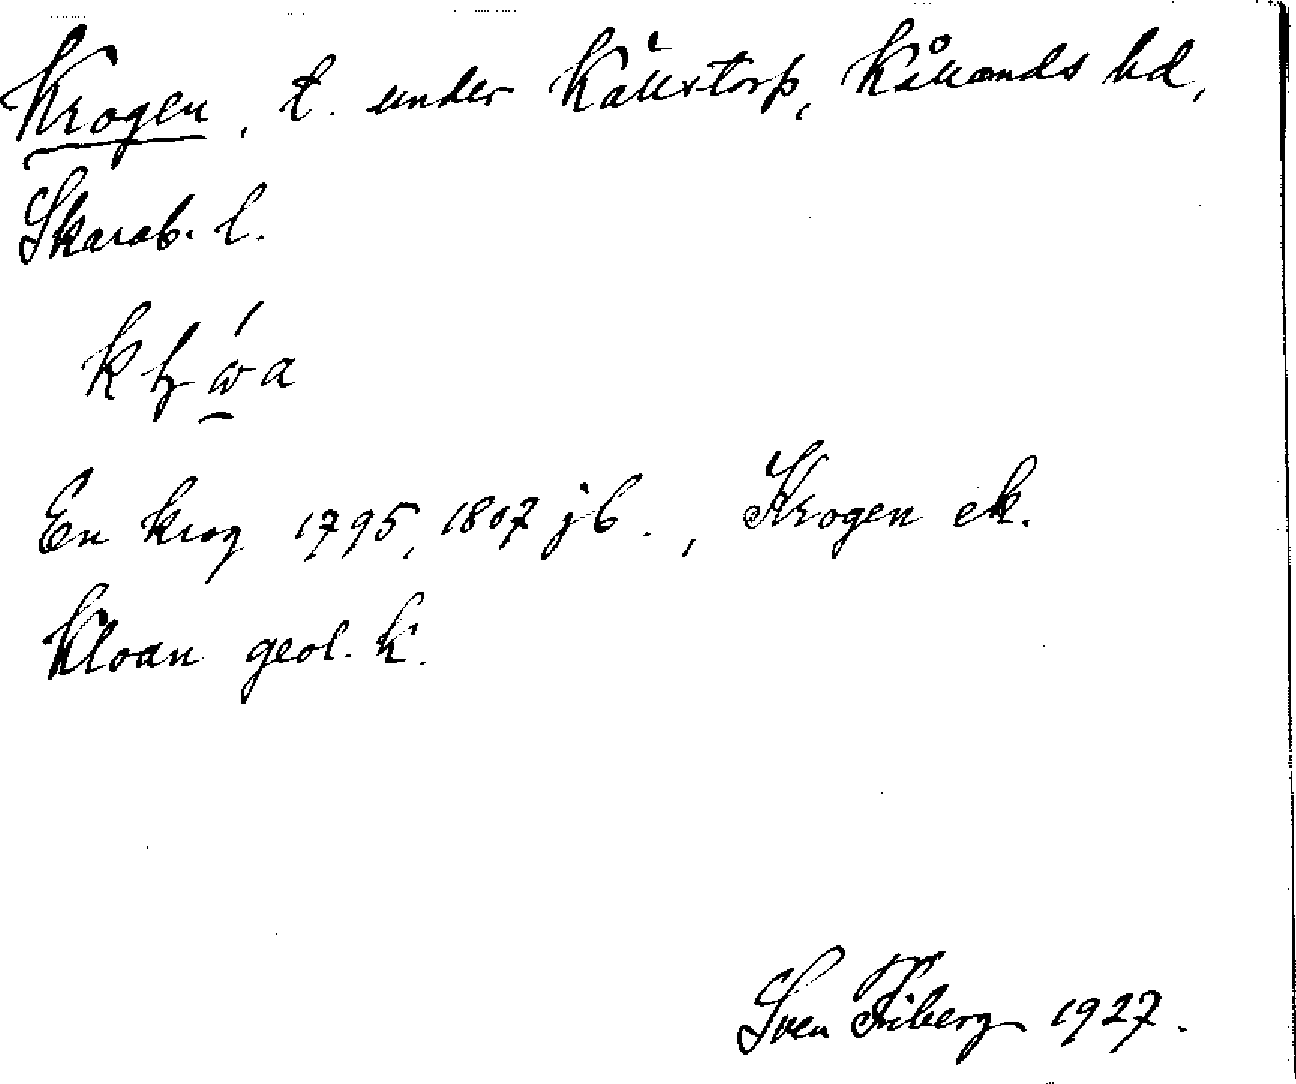 Krogen, t. under Källstorp, Kållands hd,
Skarab. l.
En krog 1795, 1807 jb., Krogen ek.
Kloan geol. k.
Sven Friberg 1927.